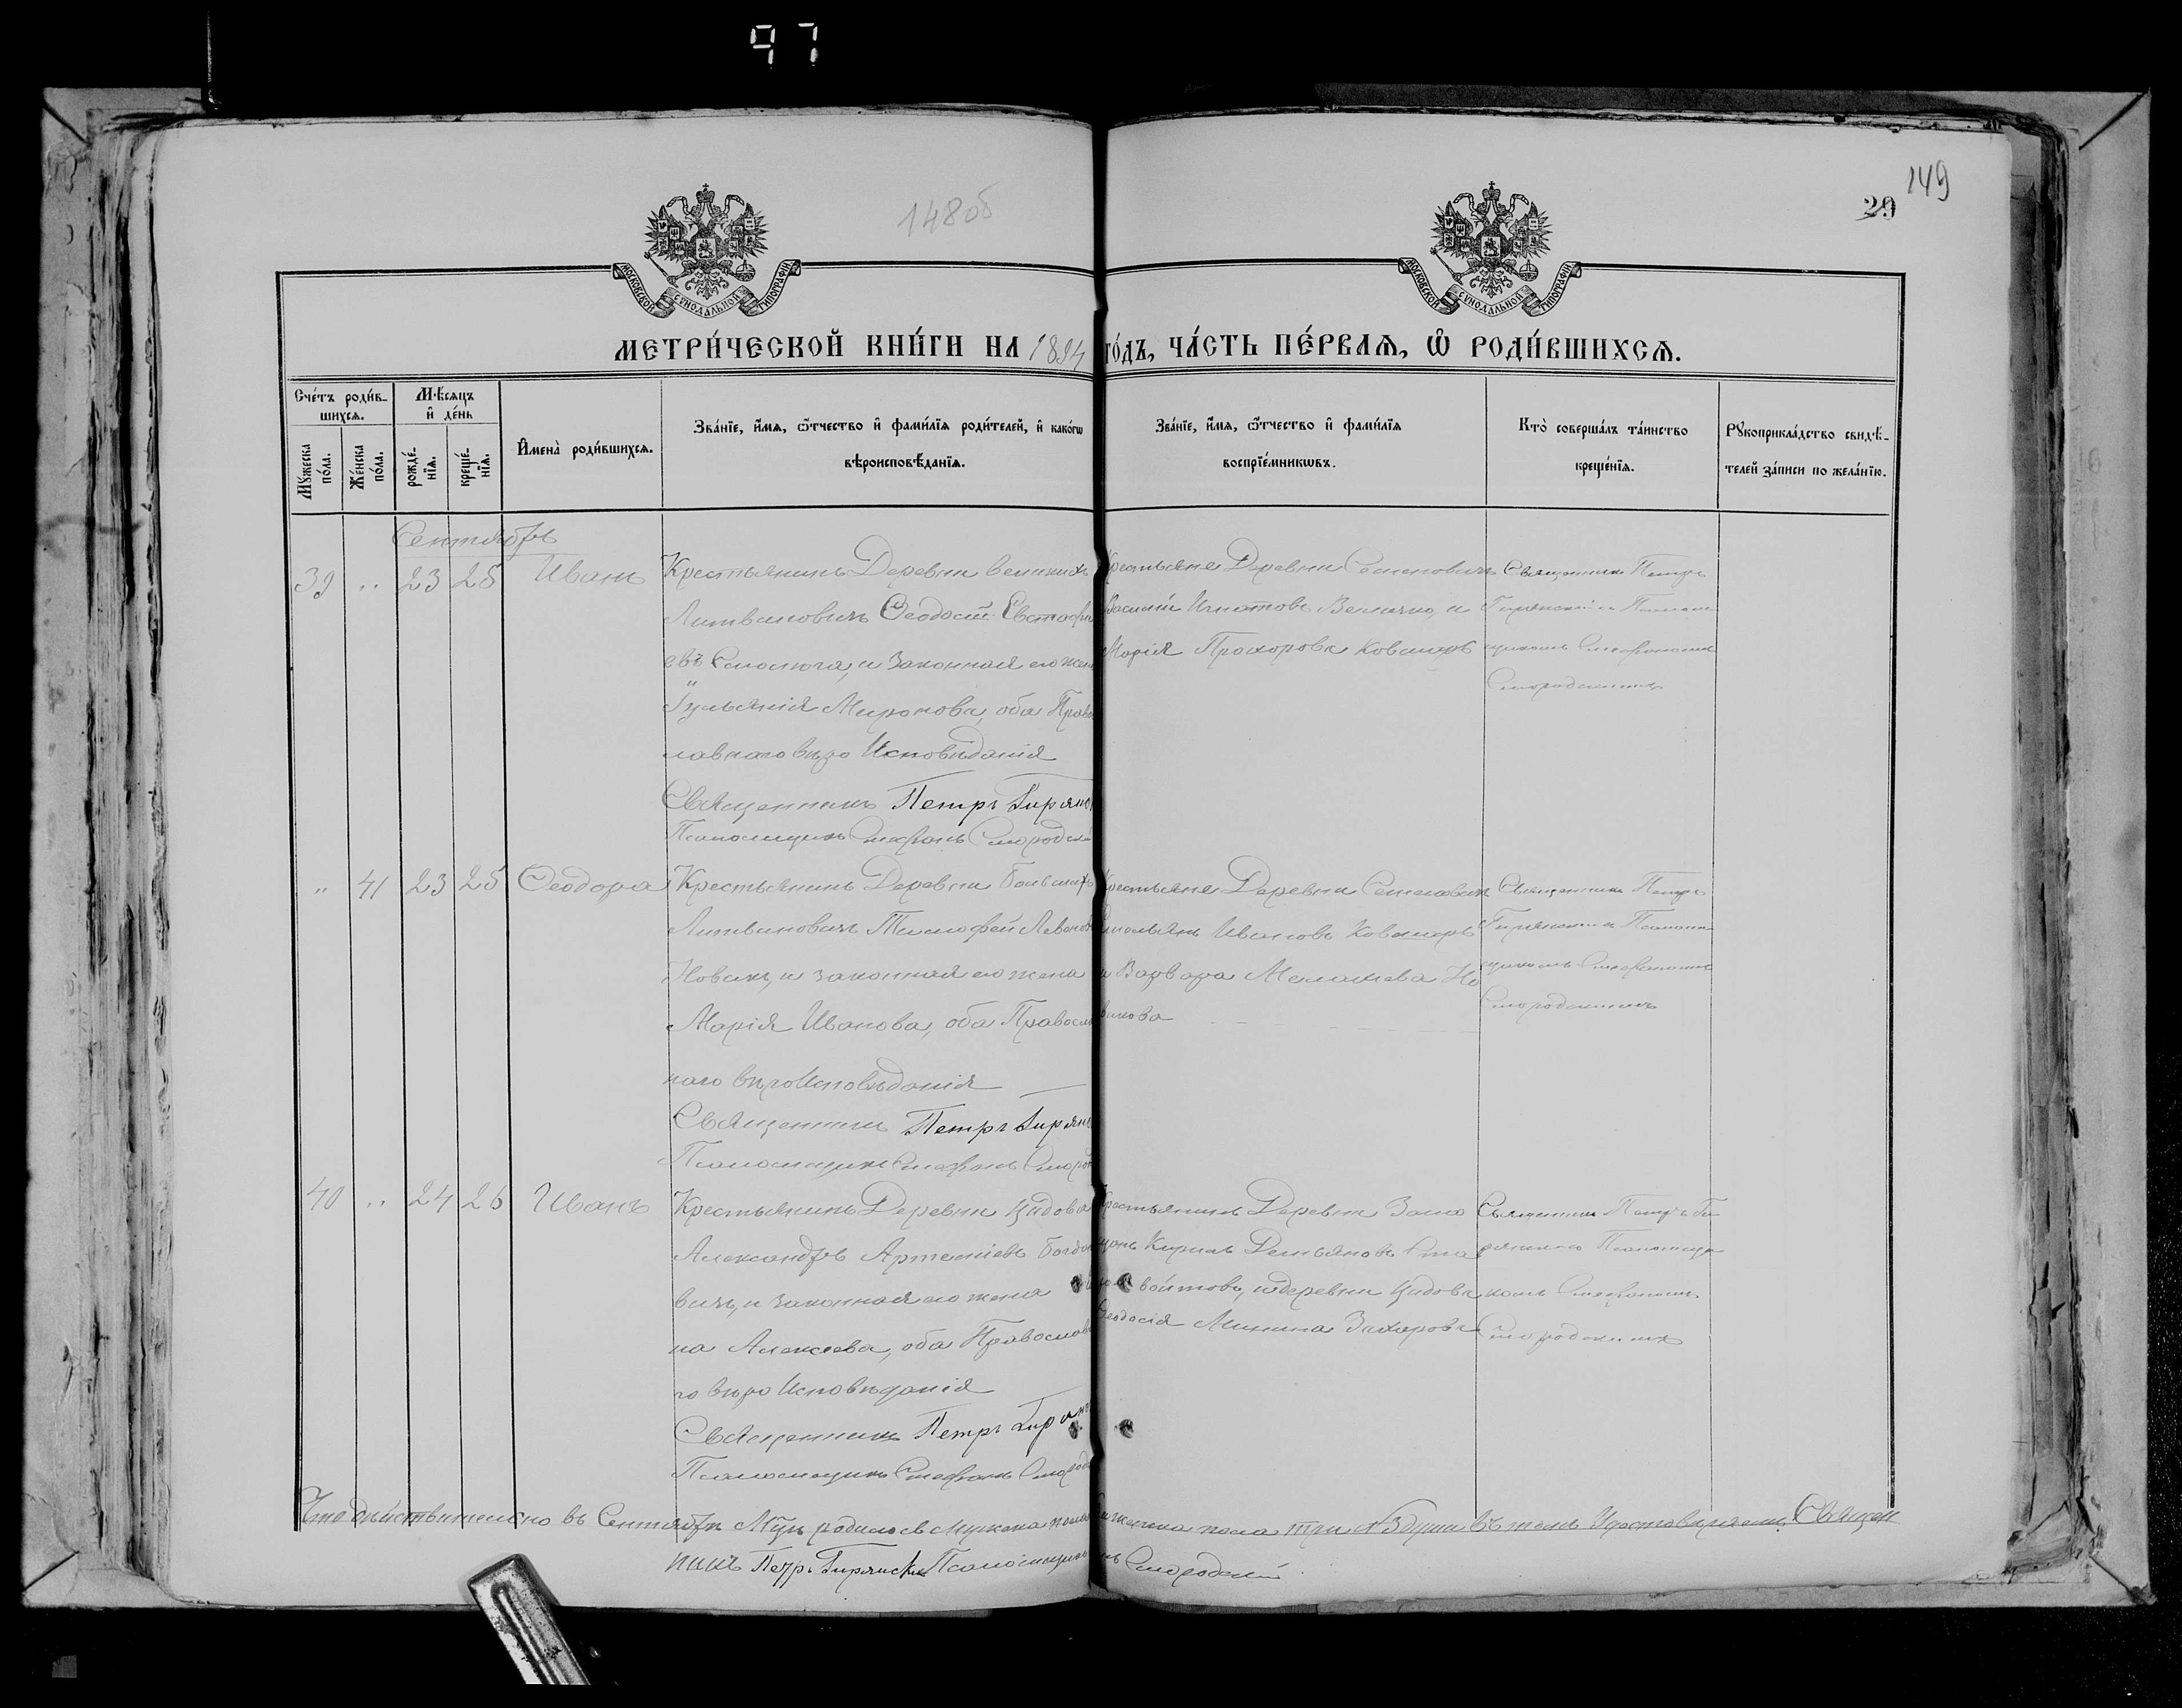 97
148 об
149
29
МОСКОВСКОЙ СУНОДАЛЬНОЙ ТИПОГРАФІИ
МОСКОВСКОЙ СУНОДАЛЬНОЙ ТИПОГРАФІИ
МЕТРИ́ЧЕСКОЙ КНИ́ГИ НА 1894 го́дъ, ЧА́СТЬ ПЕ́РВАѦ, Ѡ҆ РОДИ́ВШИХСѦ.
Сче́тъ роди́в-
шихсѧ.
Мѣ́сяцъ
и҆ де́нь
Мꙋ́жеска по́ла.
Же́нска по́ла.
рожде́-
нїѧ.
креще́-
нїѧ.
И҆мена̀ роди́вшихсѧ.
Зва́нїе, и҆́мѧ, ѻ҆́тчество и҆ фами́лїѧ роди́телей, и҆ како́гѡ
вѣроисповѣ́данїѧ.
Зва́нїе, и҆́мѧ, ѻ҆́тчество и҆ фами́лїѧ
воспрїе́мникѡвъ.
Кто̀ соверша́лъ та́инство
креще́нїѧ.
Рꙋкоприкла́дство свидѣ́-
телей за́писи по жела́нїю.
Сентябрь
39 .. 23 25 Иванъ
Крестьянинъ Деревни великихъ
Литвиновичъ Ѳеодосій Евстафи
евъ Смолюга, и законная его жена
Іульянія Миронова, оба Право
лавнаго вѣро Исповѣданія
Священникъ Петръ Гирянс
Псаломщикъ Стефанъ Смородскій
Крестьяне Деревни Семеновичъ
Василій Игнатовъ Величко, и
Марія Прохорова Ковшаръ
Священникъ Петръ
Гирянскій съ Псалом
щикомъ Стефаномъ
Смородскимъ
" 41 23 25 Ѳеодора
Крестьянинъ Деревни большихъ
Литвиновичъ Тимофей Леонов
Новикъ, и законная его жена
Марія Иванова, оба Правосл
наго вѣроИсповѣданія
Священникъ Петръ Гирянс
Псаломщикъ Стефанъ Смород
Крестьяне Деревни Семеновичъ
Емельянъ Ивановъ Ковшаръ
и Варвара Но
викова
Священникъ Петръ
Гирянскій съ Псалом
щикомъ Стефаномъ
Смородскимъ
40 .. 24 26 Иванъ
Крестьянинъ Деревни Цидова
Александръ Артеміевъ Богдано
вичъ, и законная его жена
на Алексеева, оба Православ
го вѣро Исповѣданія
Священникъ Петръ Гирянс
Псаломщикъ Стефанъ Смород
Крестьянинъ Деревни
Кирилъ Демьяновъ
войтовъ, и деревни Цидова
Ѳеодосія Минина Захарова
Священникъ Петръ Ги
рянскій съ Псаломщи
комъ Стефаномъ
Смородскимъ
Что дѣйствительно въ Сентябрѣ М҃цѣ родилось Мужска пола женска пола три № 3 души въ томъ Удостовѣряемъ Священ
никъ Петръ Гирянскій Псаломщикъ Смородскій